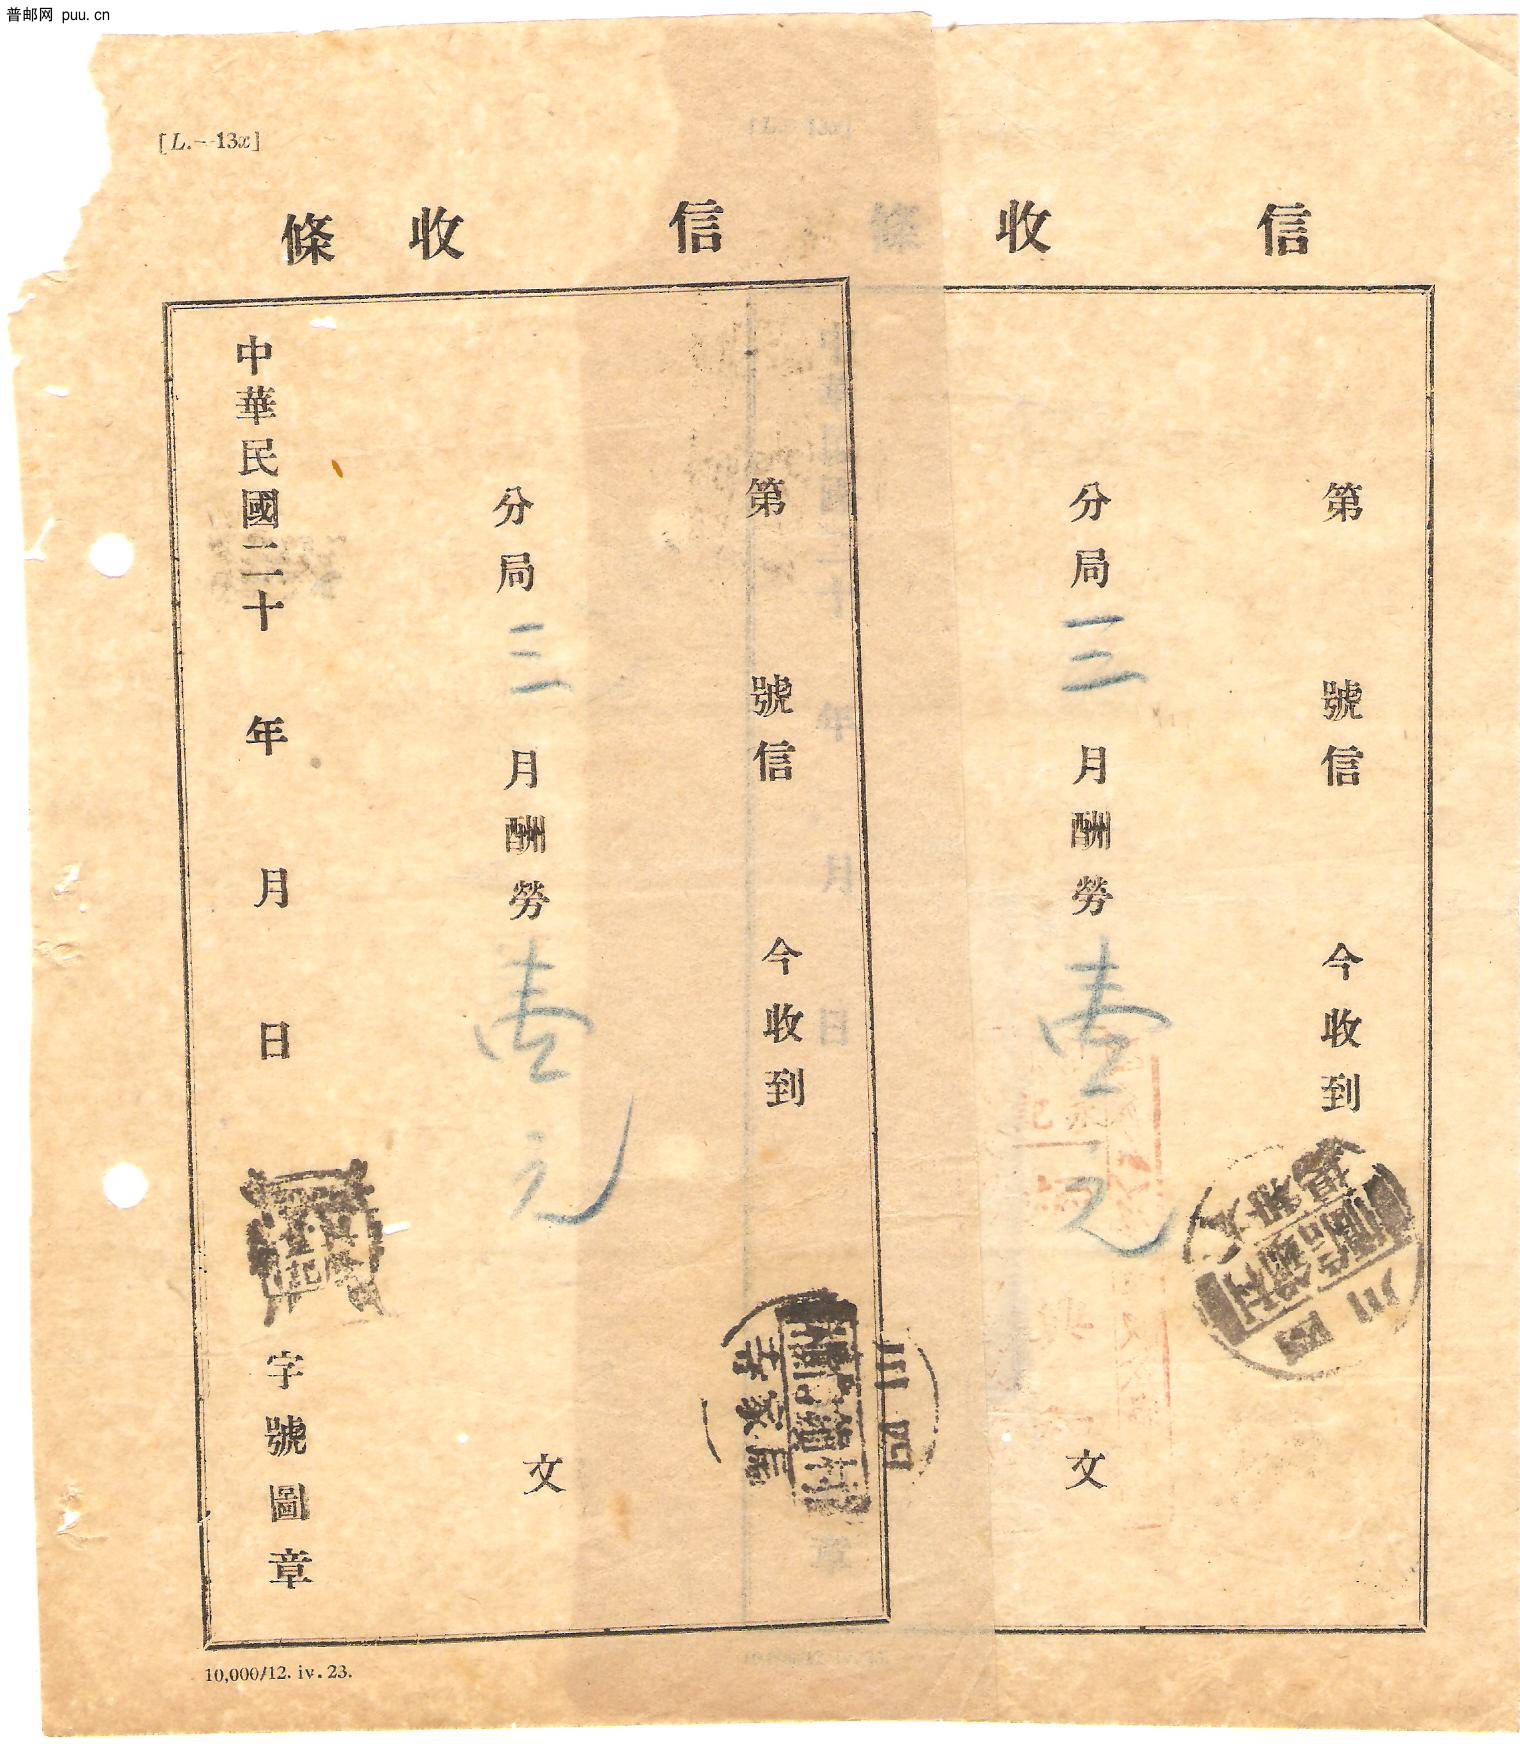 普邮网 puu.cn
[L.—13x]
信收條
第 號信 今收到
分局三月酬勞壹元 文
四川
信箱
信收條
第 號信 今收到
分局三月酬勞壹元 文
中華民國二十 年 月 日 字號圖章
四川
信箱
10,000/12. iv. 23.